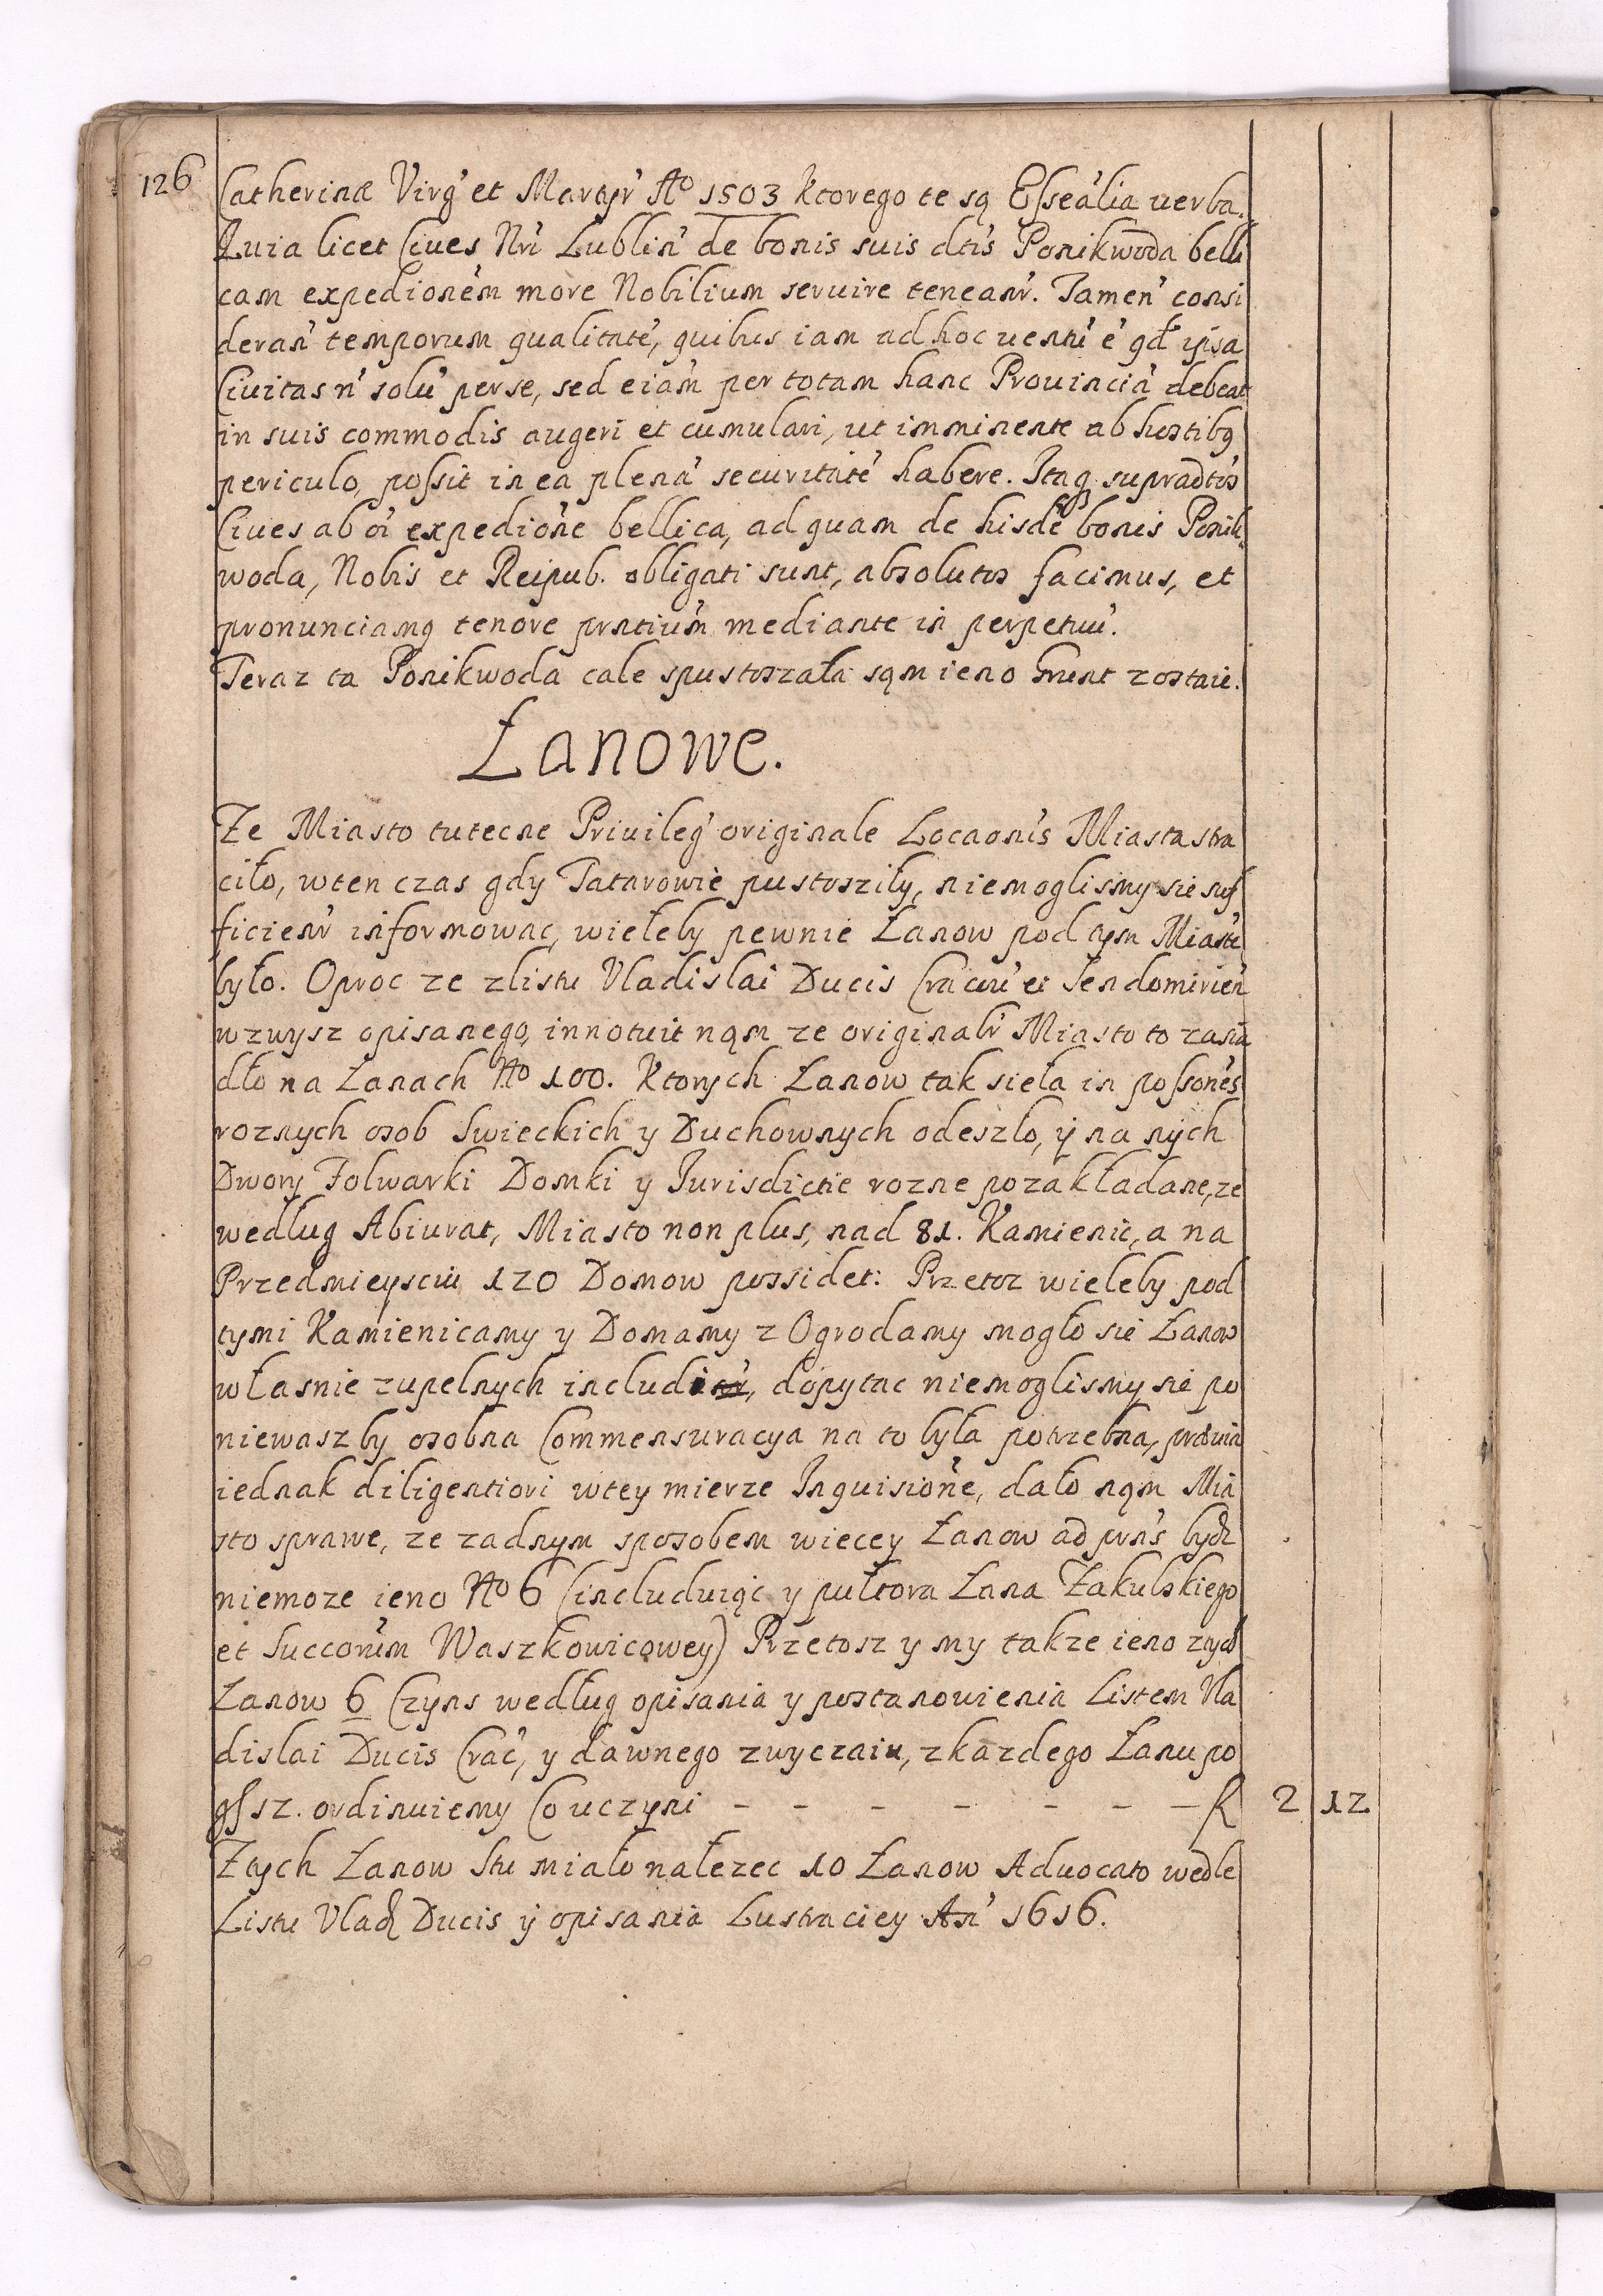 126
Catherinæ Virg' et Martyr' Aō 1503 ktorego te są Esseālia verba.
Quia licet Cives Nrī Lublin' de bonis suis dtīs Ponikwoda belli
cam expedionēm more Nobilium servire teneanr'. Tamen' consi
deran' temporum qualitatē, quibus iam ad hoc ventū ē qd ipsa
Civitas n' solū per se, sed eiam per totam hanc Provinciā debeat
in suis commodis augeri et cumulari, ut imminente ab hostibq
periculo, possit in ea plenā securitatē habere. Itaq supradtos
Cives ab oī expedione bellica, ad quam de hisdē bonis Ponik
woda, Nobis et Reipub. obligati sunt, absolutos facimus, et
pronunciamq tenore prntium mediante in perpetuū.
Teraz ta Ponikwoda cale spustoszała sąm ieno Grunt zostaie.
Łanowe.
Ze Miasto tutecne Privileg' originale Locaonis Miasta stra
ciło, wten czas gdy Tatarowie pustoszily, niemoglismy sie suf
ficienr' informowac, wieleby pewnie Łanow pod tym Miastē
było. Oproc ze z listu Vladislai Ducis Cracov' et Sendomirien'
wzwysz opisanego, innotuit nąm ze originalr' Miasto to zasia
dło na Łanach Nō 100. Ktorych Łanow tak sieła in possones
roznych osob Swieckich y Duchownych odeszlo, ÿ na nÿch
Dwory Folwarki Domki y Jurisdictie rozne pozakładane, ze
wedlug Abiurat, Miasto non plus, nad 81. Kamienic, a na
Przedmieysciu 120 Domow possidet: Przetoz wieleby pod
tymi Kamienicamy y Domamy z Ogrodamy mogło sie Łanow
własnie zupelnych includi, dopytac niemoglismy sie po
niewasz by osobna Commensuracya na to była potrzebna,
iednak diligentiori wtey mierze Inquisione, dało nąm Mia
sto sprawe, ze zadnym sposobem wiecey Łanow ad prns bydz
niemoze ieno Nō 6 (includuiąc y pułtora Łana Żakulskiego
et Succorum Waszkowicowey) Przetosz y my takze ieno ztych
Łanow 6 Czyns według opisania y postanowienia Listem Vla
dislai Ducis Crac', y dawnego zwyczaiu, zkazdego Łanu po
gſ sz. ordinuiemy Co uczyni - - - - - - - f 2 12
Ztych Łanow Stu miało nalezec 10 Łanow Advocato wedle
Listu Vlad Ducis ÿ opisania Lustraciey An' 1616.